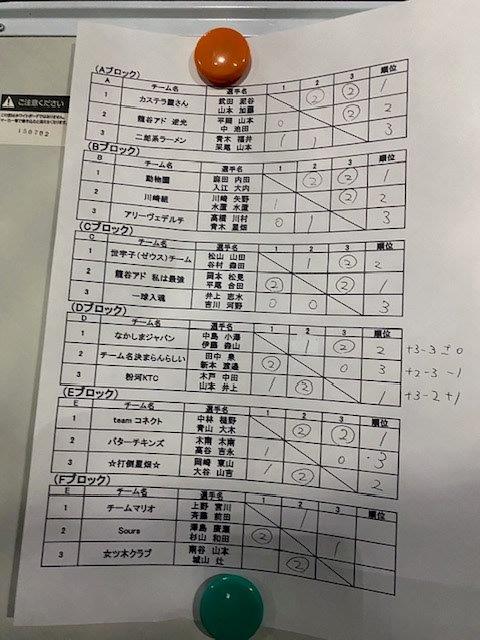 ご注意ください
(Aブロック)
A チーム名 選手名 1 2 3 順位
1 カステラ屋さん 武田 泥谷 ② ② 1
山本 加藤
2 龍谷アド 逆光 平岡 山本 0 ② 2
中 池田
3 二郎系ラーメン 青木 福井 1 3
采尾 山本
(Bブロック)
B チーム名 選手名 1 2 3 順位
1 動物園 麻田 内田 ② ② 1
入江 大内
2 川崎組 川崎 矢野 1 ② 2
水置 水置
3 アリーヴェデルチ 高橋 川村 0 1 3
青木 星畑
(Cブロック)
C チーム名 選手名 1 2 3 順位
1 世宇子(ゼウス)チーム 松山 山田 1 ② 2
谷村 森田
2 龍谷アド 私は最強 岡本 松見 ② ② 1
平尾 合田
3 一球入魂 井上 志水 0 0 3
吉川 河野
(Dブロック)
D チーム名 選手名 1 2 3 順位
1 なかしまジャパン 中島 小澤 1 ② 2 +3-3 ±0
伊藤 森山
2 チーム名決まらんらしい 田中 泉 ② 0 3 +2-3 -1
新本 渡邉
3 粉河KTC 木戸 中田 1 ② 1 +3-2 +1
山本 井上
(Eブロック)
E チーム名 選手名 1 2 3 順位
1 team コネクト 中林 樋野 ② ② 1
青山 大木
2 バターチキンズ 木南 木南 1 0 3
高谷 吉永
3 ☆打倒星畑☆ 岡崎 東山 1 ② 2
大谷 山吉
(Fブロック)
E チーム名 選手名 1 2 3 順位
1 チームマリオ 上野 宮川 1
斉藤 前田
2 Sours 澤島 廣瀬 ② 1
杉山 和田
3 女ツ木クラブ 南谷 山本 ②
城山 辻